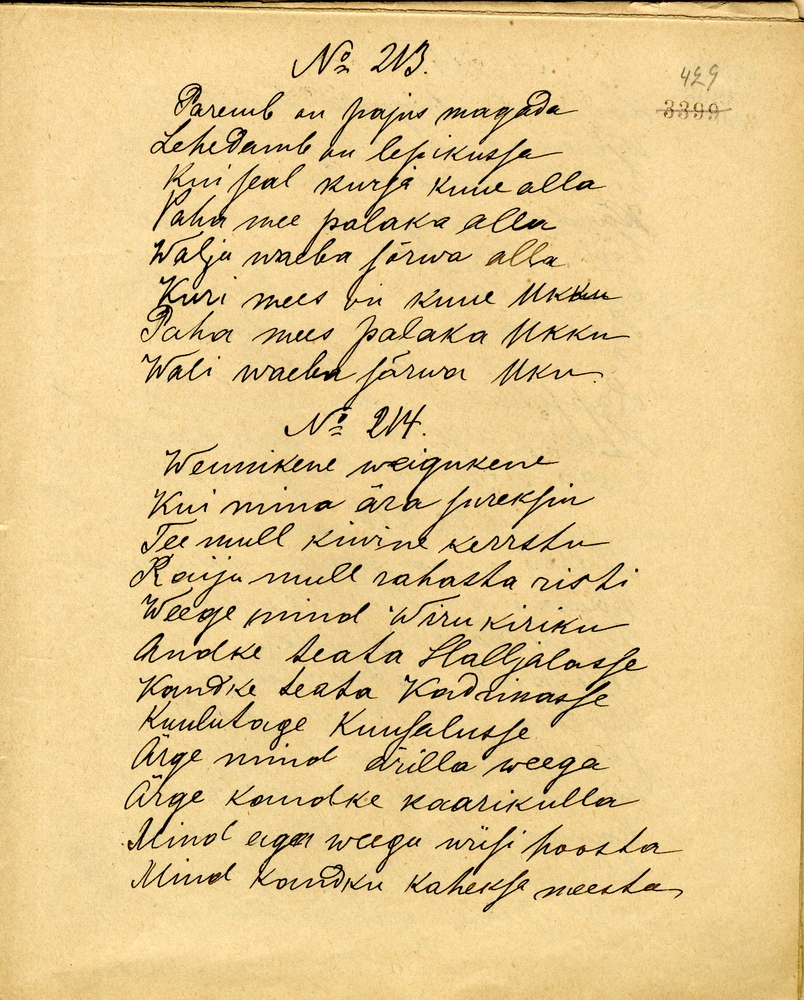 № 213.
429
3399
Paremb on pajus magada
Lehedamb on lepikussa
Kui seal kurja kuue alla
Paha mee palaka alla
Walju waeba sõrwa alla
Kuri mees on kuue Ukku
Paha mees palaka Ukku
Wali waeba sõrwa Uku.
№ 214.
Wennikene weigukene
Kui mina ära sureksin
Tee mull kiwine kerrstu
Raiju mull rahasta risti
Weege mind Wiru kiriku
Andke teata Halljalasse
Kandke teata Kadrinasse
Kuulutage Kuusalusse
Ärge mind ärilla weega
Ärge kandke kaarikulla
Mind aga weegu wiisi hoosta
Mind kandku kaheksa meesta